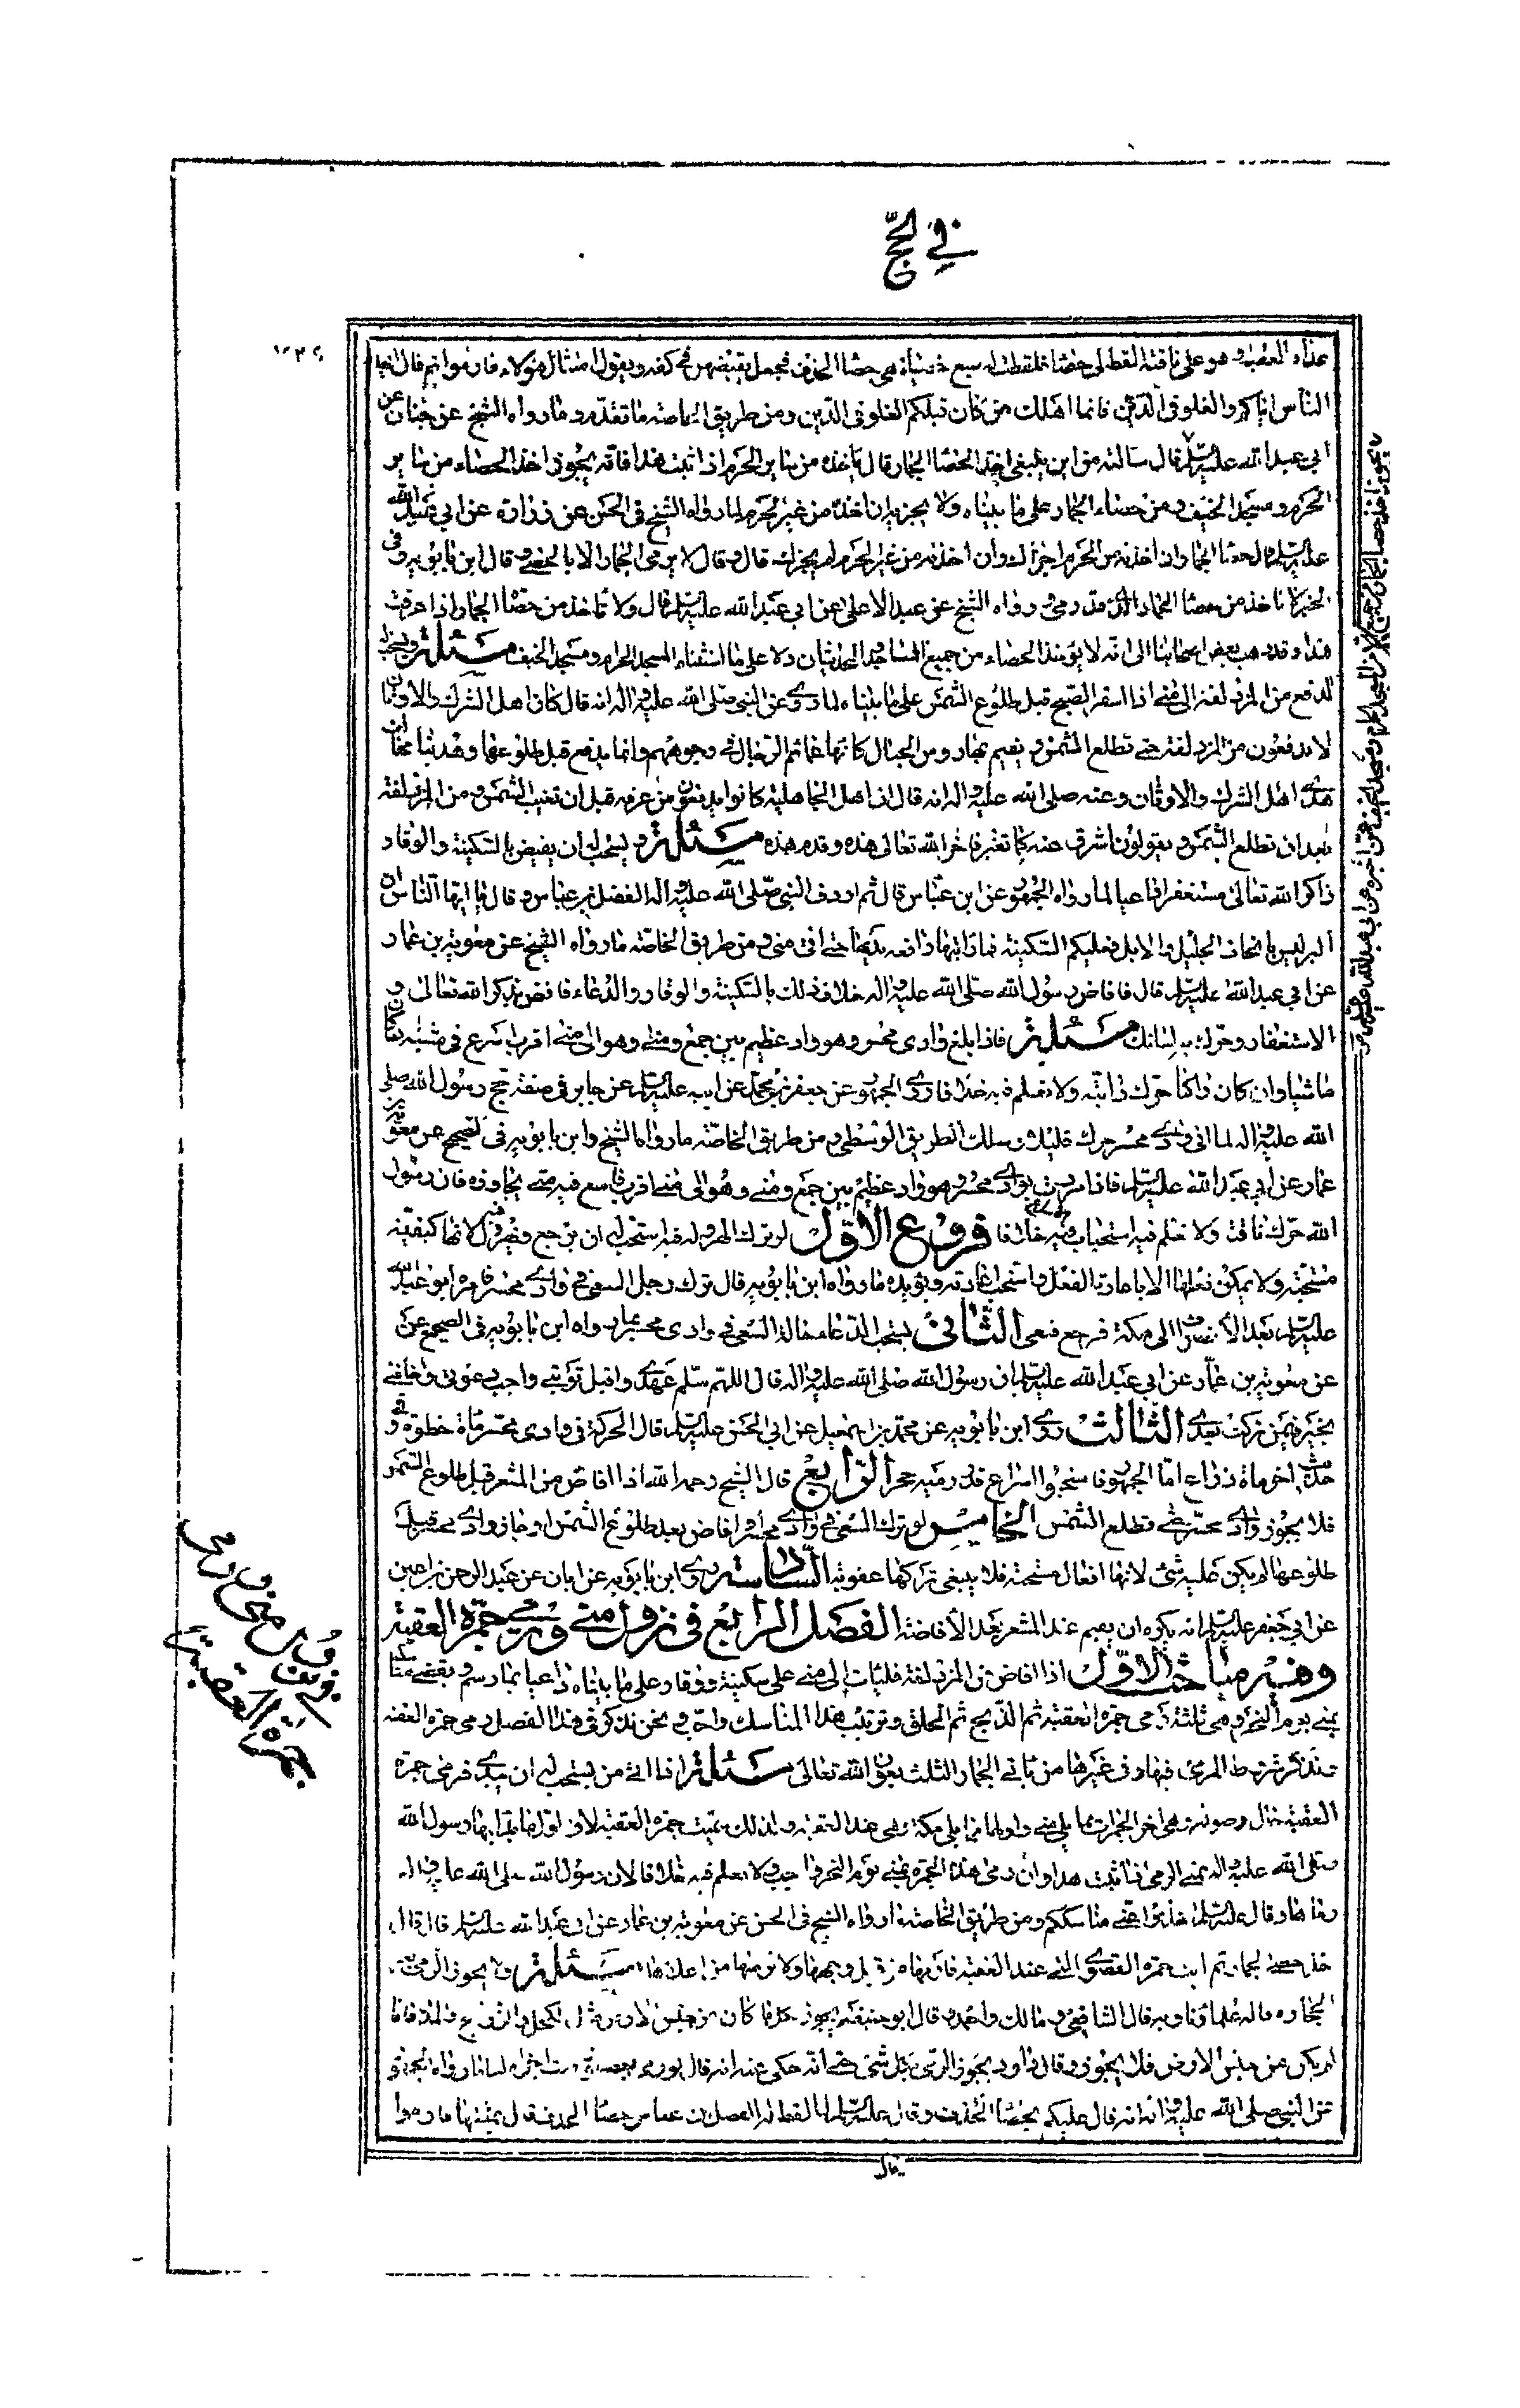 في الحج
غداة العقبة وهو على ناقته القط لي حصا فلقطت له سبع حصيات هي حصا الخذف فجعل يقبضهن في كفه ويقول امثال هؤلاء فارموا ثم قال ايها
الناس اياكم والغلو في الدين فانما اهلك من كان قبلكم الغلو في الدين ومن طريق الخاصة ما تقدم وما رواه الشيخ عن حنان عن
ابي عبد الله عليه السلم قال سالته من اين ينبغي اخذ الحصا الجمار قال ياخذه من ساير الحرم اذا ثبت هذا فانه يجوز اخذ الحصاء من ساير
الحرم ومسجد الخيف ومن حصاء الجمار على ما بيناه ولا يجزيه ان ياخذه من غير الحرم لما رواه الشيخ في الحسن عن زرارة عن ابي عبد الله
عليه السلم قال حصا الجمار ان اخذته من الحرم اجزاك وان اخذته من غير الحرم لم يجزك قال وقال لا يرمي الجمار الا بالحصى وقال ابن بابويه وفي
الخبر لا تاخذ من حصا الجمار الذي قد رمي وروى الشيخ عن عبد الاعلى عن ابي عبد الله عليه السلم قال ولا تاخذ من حصا الجمار اذا عرفت
هذا وقد ذهب بعض اصحابنا الى انه لا يؤخذ الحصاء من جميع المساجد والحديثان دلا على ما استثناء المسجد الحرام ومسجد الخيف مسئلة ويستحب
الدفع من المزدلفة الى منى اذا اسفر الصبح قبل طلوع الشمس على ما بيناه لما روي عن النبي صلى الله عليه واله انه قال كان اهل الشرك والاوثان
لا يدفعون من المزدلفة حتى تطلع الشمس ويقيم بها رؤس الجبال كانها عمائم الرجال في وجوههم وانما يدفع قبل طلوعها وهدينا مخالف
هدي اهل الشرك والاوثان وعنه صلى الله عليه واله انه قال ان اهل الجاهلية كانوا يدفعون من عرفة قبل ان تغيب الشمس ومن المزدلفة
بعد ان تطلع الشمس ويقولون اشرق ثبير كيما نغير فاخر الله تعالى هذه وقدم هذه مسئلة ويستحب له ان يفيض بالسكينة والوقار
ذاكرا لله تعالى مستغفرا داعيا لما رواه الجمهور عن ابن عباس قال ثم اردف النبي صلى الله عليه واله الفضل بن عباس وقال يا ايها الناس ان
البر ليس بايجاف الخيل والابل فعليكم السكينة فما رايتها رافعة يديها حتى اتى منى ومن طريق الخاصة ما رواه الشيخ عن معوية بن عمار
عن ابي عبد الله عليه السلم قال فافاض رسول الله صلى الله عليه واله خلاف ذلك بالسكينة والوقار والدعاء فافض بذكر الله تعالى و
الاستغفار وحرك به لسانك مسئلة فاذا بلغ وادي محسر وهو واد عظيم بين جمع ومنى وهو الى منى اقرب اسرع في مشيه ان كان
ماشيا وان كان راكبا حرك دابته ولا نعلم فيه خلافا روى الجمهور عن جعفر بن محمد عن ابيه عليه السلم عن جابر في صفة حج رسول الله صلى
الله عليه واله لما اتى وادي محسر حرك قليلا ثم سلك الطريق الوسطى ومن طريق الخاصة ما رواه الشيخ وابن بابويه في الصحيح عن معوية بن
عمار عن ابي عبد الله عليه السلم فاذا مررت بوادي محسر وهو واد عظيم بين جمع ومنى وهو الى منى اقرب فاسع فيه حتى تجاوزه فان رسول
الله حرك ناقته ولا نعلم في استحباب فيه خلافا فروع الاول لو ترك الهرولة فيه استحب له ان يرجع ويهرول لانها كيفية
مستحبة ولا يمكن فعلها الا باعادة الفعل فاستحب اعادته ويؤيده ما رواه ابن بابويه قال ترك رجل السعي في وادي محسر فامره ابو عبد الله
عليه السلم بعد الانصراف الى مكة فرجع فسعى الثاني يستحب الدعاء حالة السعي في وادي محسر بما رواه ابن بابويه في الصحيح عن
عن معوية بن عمار عن ابي عبد الله عليه السلم ان رسول الله صلى الله عليه واله قال اللهم سلم عهدي واقبل توبتي واجب دعوتي واخلفني
بخير فيمن تركت بعدي الثالث روى ابن بابويه عن محمد بن اسمعيل عن ابي الحسن عليه السلم قال الحركة في وادي محسر مائة خطوة وفي
حديث اخر مائة ذراع اما الجمهور فاستحبوا الاسراع قدر رمية حجر الرابع قال الشيخ رحمه الله اذا افاض من المشعر قبل طلوع الشمس
فلا يجوز وادي محسر حتى تطلع الشمس الخامس لو ترك السعي في وادي محسر او افاض بعد طلوع الشمس او جاز وادي محسر قبل
طلوعها لم يكن عليه شئ لانها افعال مستحبة فلا يتبعض تركها عقوبة السادس روى ابن بابويه عن ابان عن عبد الرحمن بن اعين
عن ابي جعفر عليه السلم انه يكره ان يقيم عند المشعر بعد الافاضة الفصل الرابع في نزول منى ورمي جمرة العقبة
وفيه مباحث الاول اذا افاض من المزدلفة فليات الى منى على سكينة ووقار وعلى ما بيناه داعيا بما رسم ويقضي مناسكه
بمنى يوم النحر وهي ثلثة رمي جمرة العقبة ثم الذبح ثم الحلق وترتيب هذا المناسك واجب ونحن نذكر في هذا الفصل رمي جمرة العقبة
ونذكر شرايط الرمي فيها وفي غيرها من باقي الجمار الثلث بعون الله تعالى مسئلة اذا اتى منى يستحب له ان يبدء فرمي جمرة
العقبة حال وصوله وهي اخر الجمرات مما يلي منى واولها مما يلي مكة وهي عند العقبة ولذلك سميت جمرة العقبة لان اول ما بدا بها رسول الله
صلى الله عليه واله بمنى الرمي اذا ثبت هذا وان رمي هذه الجمرة بمنى يوم النحر واجب ولا نعلم فيه خلافا لان رسول الله صلى الله عليه واله
رماها وقال عليه السلم خذوا عني مناسككم ومن طريق الخاصة ما رواه الشيخ في الحسن عن معوية بن عمار عن ابي عبد الله عليه السلم قال قال
خذ حصى الجمار ثم ايت جمرة القصوى التي عند العقبة فارمها من قبل وجهها ولا ترمها من اعلاها مسئلة ولا يجوز الرمي
الحجارة قاله علماؤنا وبه قال الشافعي ومالك واحمد وقال ابو حنيفة يجوز بكل ما كان من جنس الارض مثل الكحل والزرنيخ والمدر فاما
لم يكن من جنس الارض فلا يجوز وقال داود يجوز الرمي بكل شئ حتى انه حكى عنه انه قال لو رمي بعصفور ميت اجزاه لنا ما رواه الجمهور
عن النبي صلى الله عليه واله انه قال عليكم بحصا الخذف وقال عليه السلم لما لقط له الفضل بن عباس حصا الخذف قال بمثلها فارموا
يقال
في نزول منى ورمي
جمرة العقبة